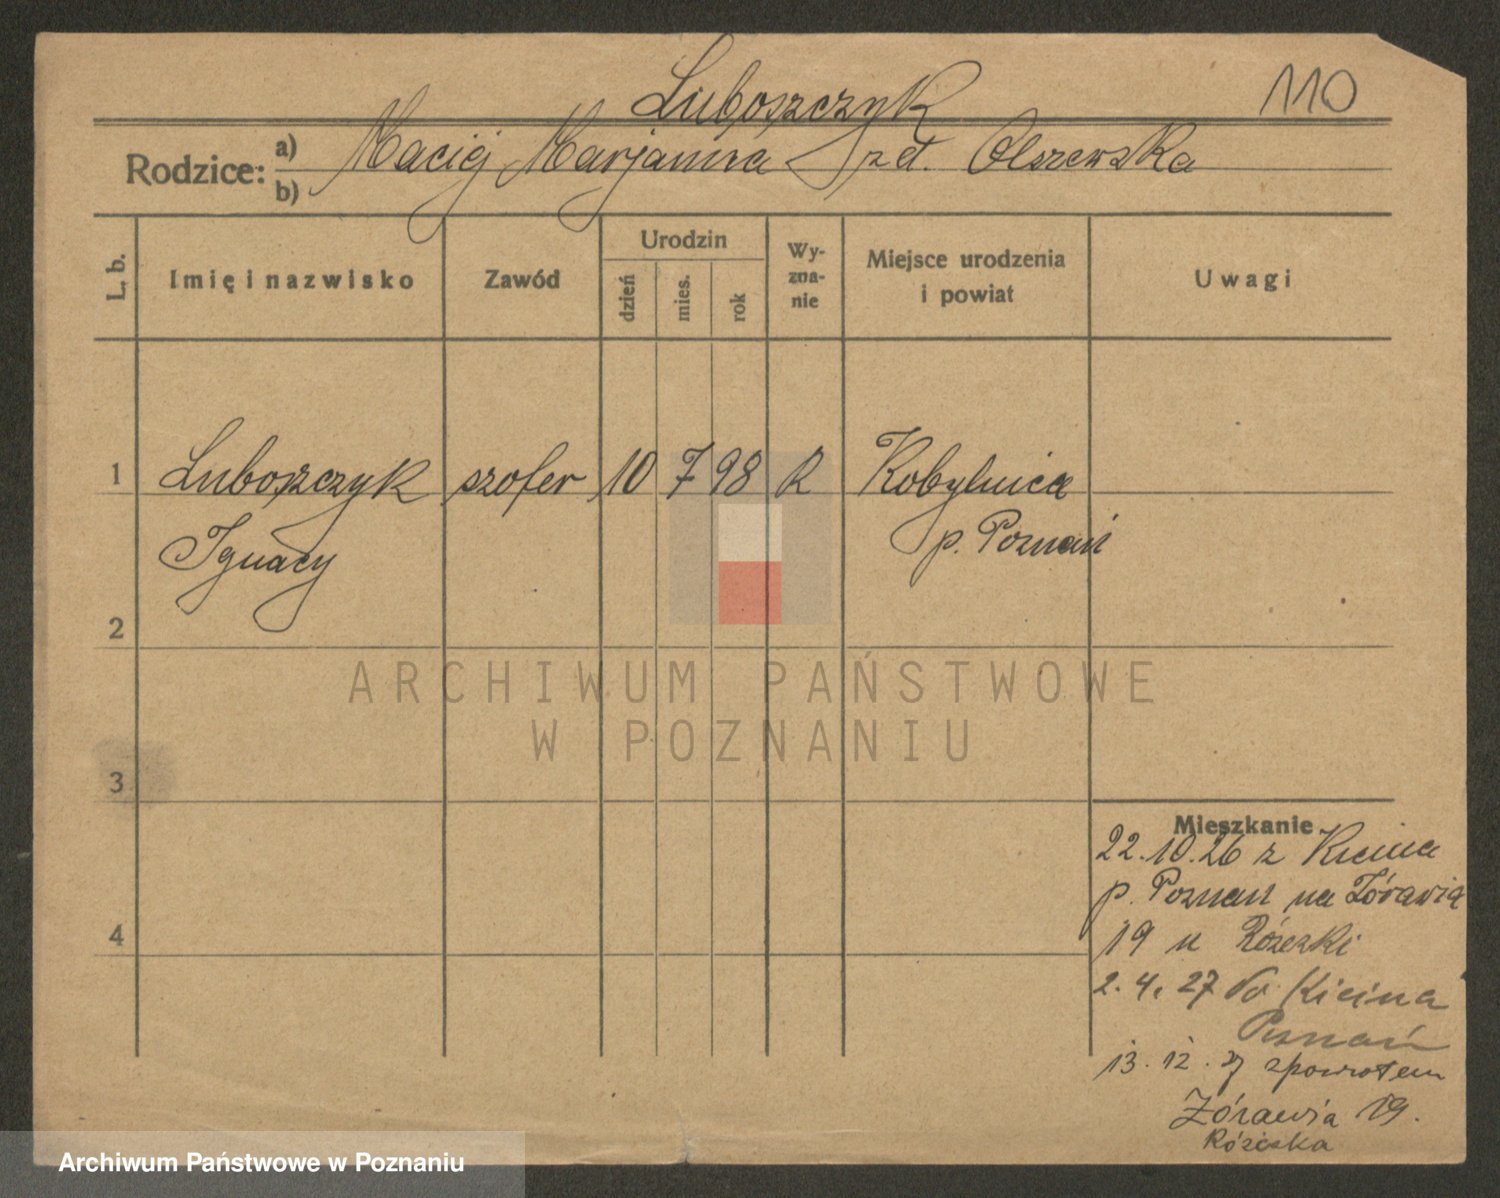 110
Luboszczyk
Rodzice: a) b) Maciej Marjanna zd. Olszewska
L. b. Imię i nazwisko Zawód Urodzin dzień mies. rok Wyznanie Miejsce urodzenia i powiat Uwagi
1 Luboszczyk szofer 10 7 98 R Kobylnica
Ignacy p. Poznań
2
ARCHIWUM PAŃSTWOWE
W POZNANIU
3
Mieszkanie
22.10.26 z Kicina
p. Poznań na Żórawią
4
19 u
2.4.27 do Kicina
Poznań
13.12.27 zpowrotem
Żórawia 19.
Archiwum Państwowe w Poznaniu